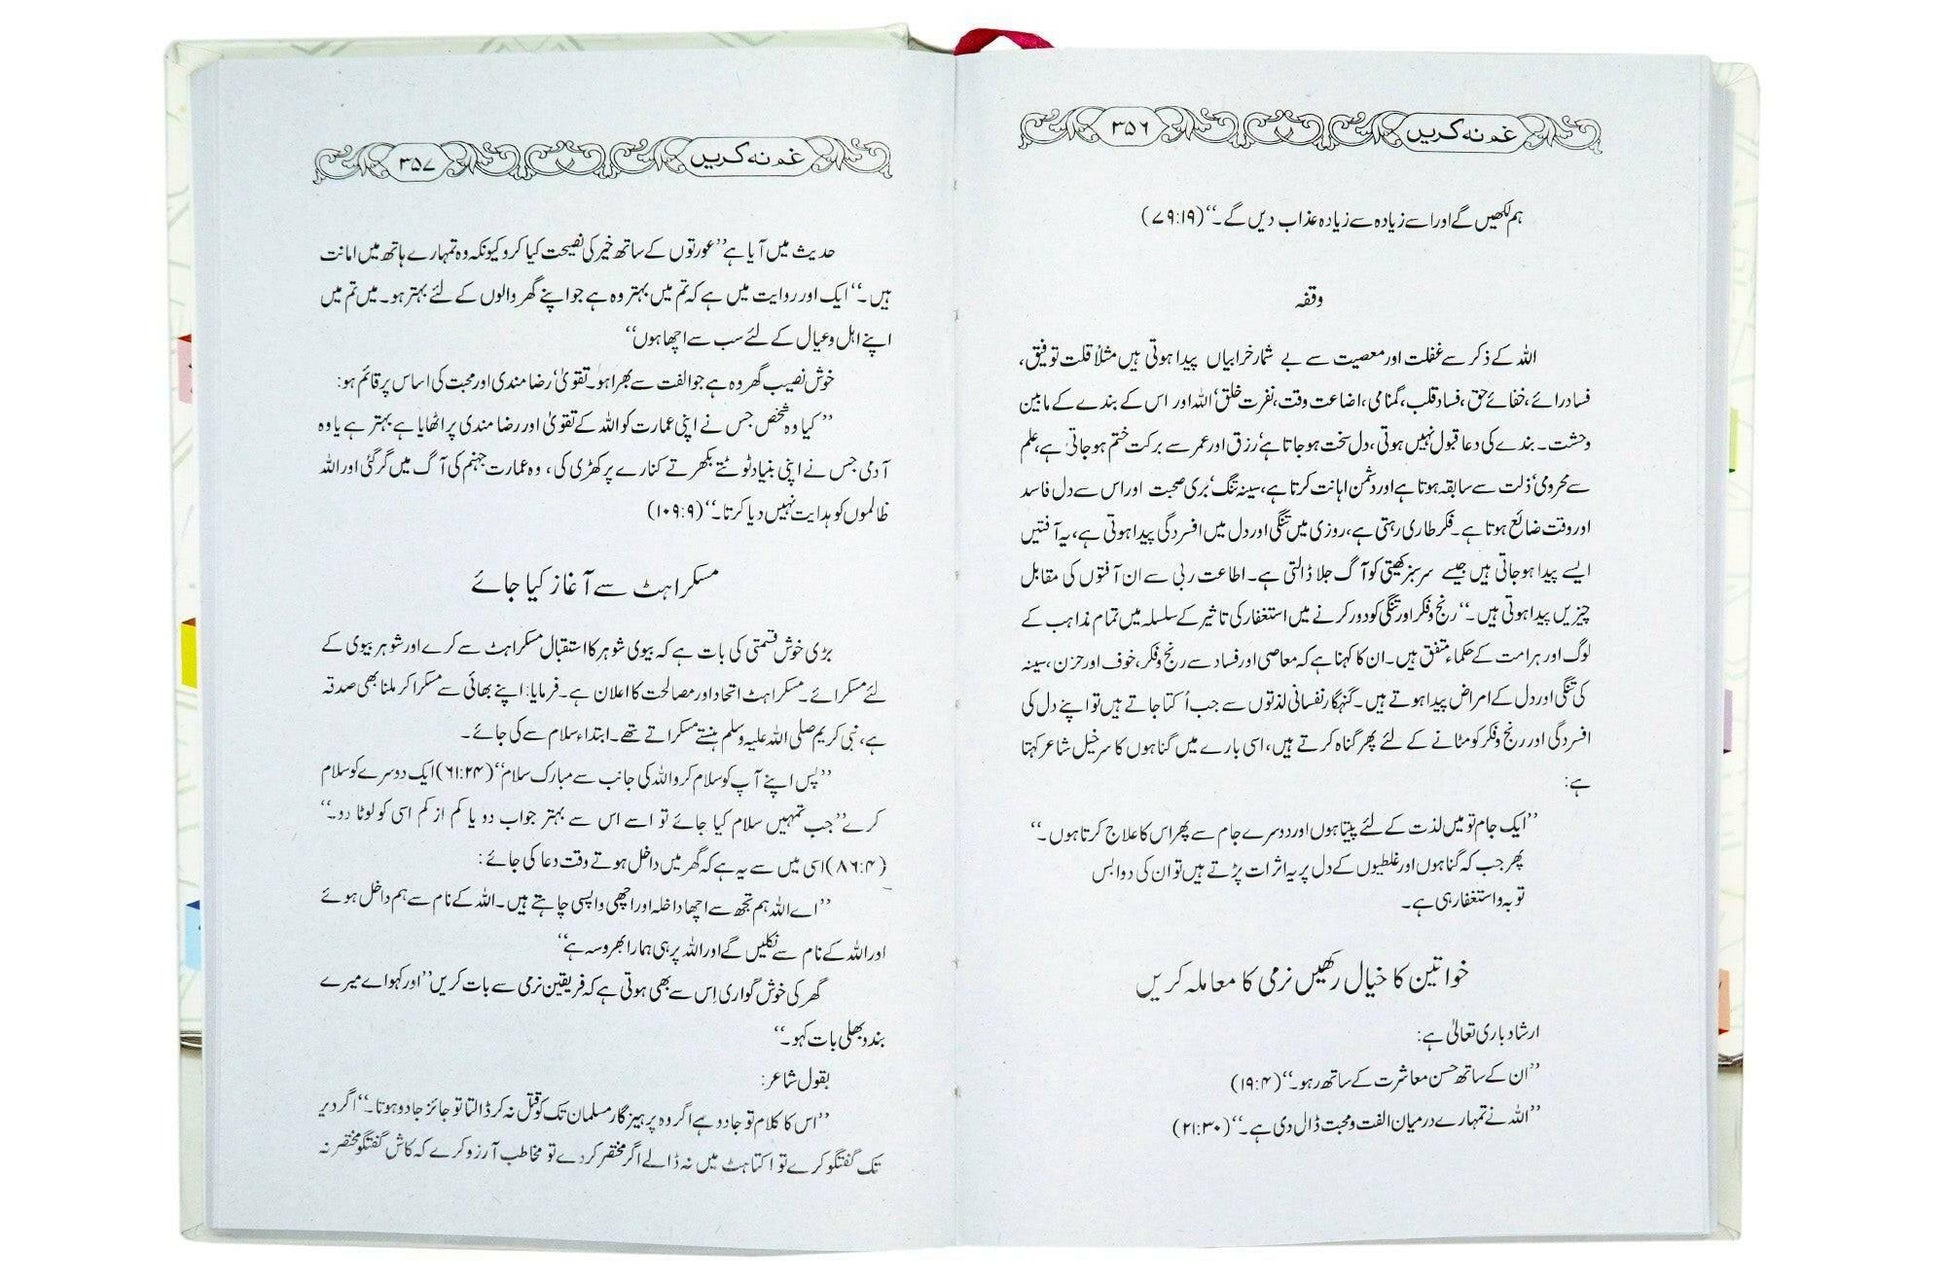 غم نہ کریں ۳۵۶
ہم لکھیں گے اور اسے زیادہ سے زیادہ عذاب دیں گے۔‘‘ (۷۹:۱۹)
وقفہ
اللہ کے ذکر سے غفلت اور معصیت سے بے شمار خرابیاں پیدا ہوتی ہیں مثلاً قلت توفیق،
فساد رائے، خفائے حق، فساد قلب، گمنامی، اضاعت وقت، نفرت خلق‘ اللہ اور اس کے بندے کے مابین
وحشت۔ بندے کی دعا قبول نہیں ہوتی، دل سخت ہو جاتا ہے‘ رزق اور عمر سے برکت ختم ہو جاتی ہے، علم
سے محرومی‘ ذلت سے سابقہ ہوتا ہے اور دشمن اہانت کرتا ہے، سینہ تنگ‘ بری صحبت اور اس سے دل فاسد
اور وقت ضائع ہوتا ہے۔ فکر طاری رہتی ہے، روزی میں تنگی اور دل میں افسردگی پیدا ہوتی ہے، یہ آفتیں
ایسے پیدا ہو جاتی ہیں جیسے سرسبز کھیتی کو آگ جلا ڈالتی ہے۔ اطاعت ربی سے ان آفتوں کی مقابل
چیزیں پیدا ہوتی ہیں۔‘‘ رنج و فکر اور تنگی کو دور کرنے میں استغفار کی تاثیر کے سلسلہ میں تمام مذاہب کے
لوگ اور ہر امت کے حکماء متفق ہیں۔ ان کا کہنا ہے کہ معاصی اور فساد سے رنج و فکر، خوف اور حزن، سینہ
کی تنگی اور دل کے امراض پیدا ہوتے ہیں۔ گنہگار نفسانی لذتوں سے جب اُکتا جاتے ہیں تو اپنے دل کی
افسردگی اور رنج و فکر کو مٹانے کے لئے پھر گناہ کرتے ہیں، اسی بارے میں گناہوں کا سرخیل شاعر کہتا
ہے:
’’ایک جام تو میں لذت کے لئے پیتا ہوں اور دوسرے جام سے پھر اس کا علاج کرتا ہوں۔‘‘
پھر جب کہ گناہوں اور غلطیوں کے دل پر یہ اثرات پڑتے ہیں تو ان کی دوا بس
توبہ و استغفار ہی ہے۔
خواتین کا خیال رکھیں نرمی کا معاملہ کریں
ارشاد باری تعالیٰ ہے:
’’ان کے ساتھ حسن معاشرت کے ساتھ رہو۔‘‘ (۱۹:۴)
’’اللہ نے تمہارے درمیان الفت و محبت ڈال دی ہے۔‘‘ (۲۱:۳۰)
غم نہ کریں ۳۵۷
حدیث میں آیا ہے’’عورتوں کے ساتھ خیر کی نصیحت کیا کرو کیونکہ وہ تمہارے ہاتھ میں امانت
ہیں۔‘‘ ایک اور روایت میں ہے کہ تم میں بہتر وہ ہے جو اپنے گھر والوں کے لئے بہتر ہو۔ میں تم میں
اپنے اہل و عیال کے لئے سب سے اچھا ہوں‘‘
خوش نصیب گھر وہ ہے جو الفت سے بھرا ہو۔ تقویٰ‘ رضامندی اور محبت کی اساس پر قائم ہو:
’’کیا وہ شخص جس نے اپنی عمارت کو اللہ کے تقویٰ اور رضامندی پر اٹھایا ہے بہتر ہے یا وہ
آدمی جس نے اپنی بنیاد ٹوٹتے بکھرتے کنارے پر کھڑی کی، وہ عمارت جہنم کی آگ میں گر گئی اور اللہ
ظالموں کو ہدایت نہیں دیا کرتا۔‘‘ (۱۰۹:۹)
مسکراہٹ سے آغاز کیا جائے
بڑی خوش قسمتی کی بات ہے کہ بیوی شوہر کا استقبال مسکراہٹ سے کرے اور شوہر بیوی کے
لئے مسکرائے۔ مسکراہٹ اتحاد اور مصالحت کا اعلان ہے۔ فرمایا: اپنے بھائی سے مسکرا کر ملنا بھی صدقہ
ہے، نبی کریم صلی اللہ علیہ وسلم ہنستے مسکراتے تھے۔ ابتداء سلام سے کی جائے۔
’’پس اپنے آپ کو سلام کرو اللہ کی جانب سے مبارک سلام‘‘ (۶۱:۲۴) ایک دوسرے کو سلام
کرے’’جب تمہیں سلام کیا جائے تو اسے اس سے بہتر جواب دو یا کم از کم اسی کو لوٹا دو۔‘‘
(۸۶:۴) اسی میں سے یہ ہے کہ گھر میں داخل ہوتے وقت دعا کی جائے:
’’اے اللہ ہم تجھ سے اچھا داخلہ اور اچھی واپسی چاہتے ہیں۔ اللہ کے نام سے ہم داخل ہوئے
اور اللہ کے نام سے نکلیں گے اور اللہ پر ہی ہمارا بھروسہ ہے‘‘
گھر کی خوش گواری اِس سے بھی ہوتی ہے کہ فریقین نرمی سے بات کریں’’اور کہو اے میرے
بندو بھلی بات کہو۔‘‘
بقول شاعر:
’’اس کا کلام تو جادو ہے اگر وہ پرہیز گار مسلمان تک کو قتل نہ کر ڈالتا تو جائز جادو ہوتا۔‘‘ اگر دیر
تک گفتگو کرے تو اکتاہٹ میں نہ ڈالے اگر مختصر کر دے تو مخاطب آرزو کرے کہ کاش گفتگو مختصر نہ